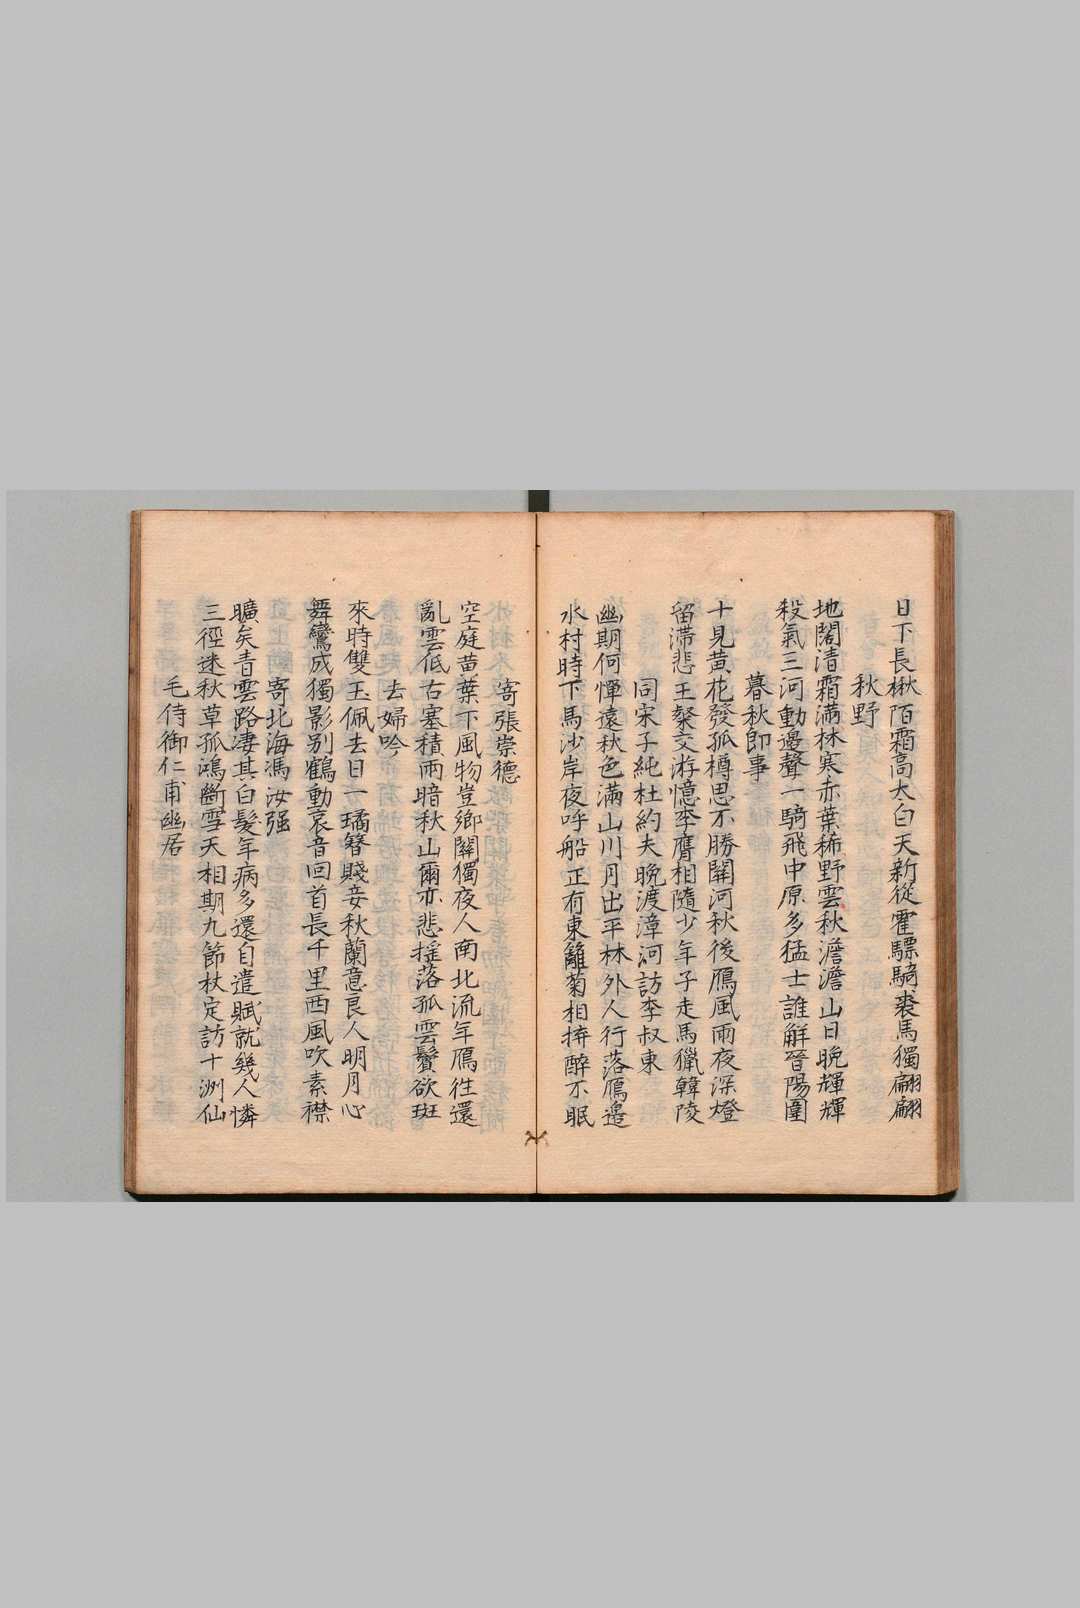 日下長楸陌霜高太白天新從霍驃騎裘馬獨翩翩
秋野
地闊清霜滿林寒赤葉稀野雲秋澹澹山日晩輝輝
殺氣三河動邊聲一騎飛中原多猛士誰解晉陽圍
暮秋卽事
十見黄花發孤樽思不勝關河秋後鴈風雨夜深燈
留滯悲王粲交游憶李膺相隨少年子走馬獵韓陵
同宋子純杜約夫晩渡漳河訪李叔東
幽期何憚遠秋色滿山川月出平林外人行落鴈邊
水村時下馬沙岸夜呼船正有東籬菊相拚醉不眠
寄張崇德
空庭黄葉下風物豈鄉關獨夜人南北流年鴈往還
亂雲低古塞積雨暗秋山爾亦悲摇落孤雲鬢欲斑
去婦吟
來時雙玉佩去日一璚簪賤妾秋蘭意良人明月心
舞鸞成獨影别鶴動哀音回首長千里西風吹素襟
寄北海馮汝强
曠矣青雲路凄其白髮年病多還自遣賦就幾人憐
三徑迷秋草孤鴻斷雪天相期九節杖定訪十洲仙
毛侍御仁甫幽居